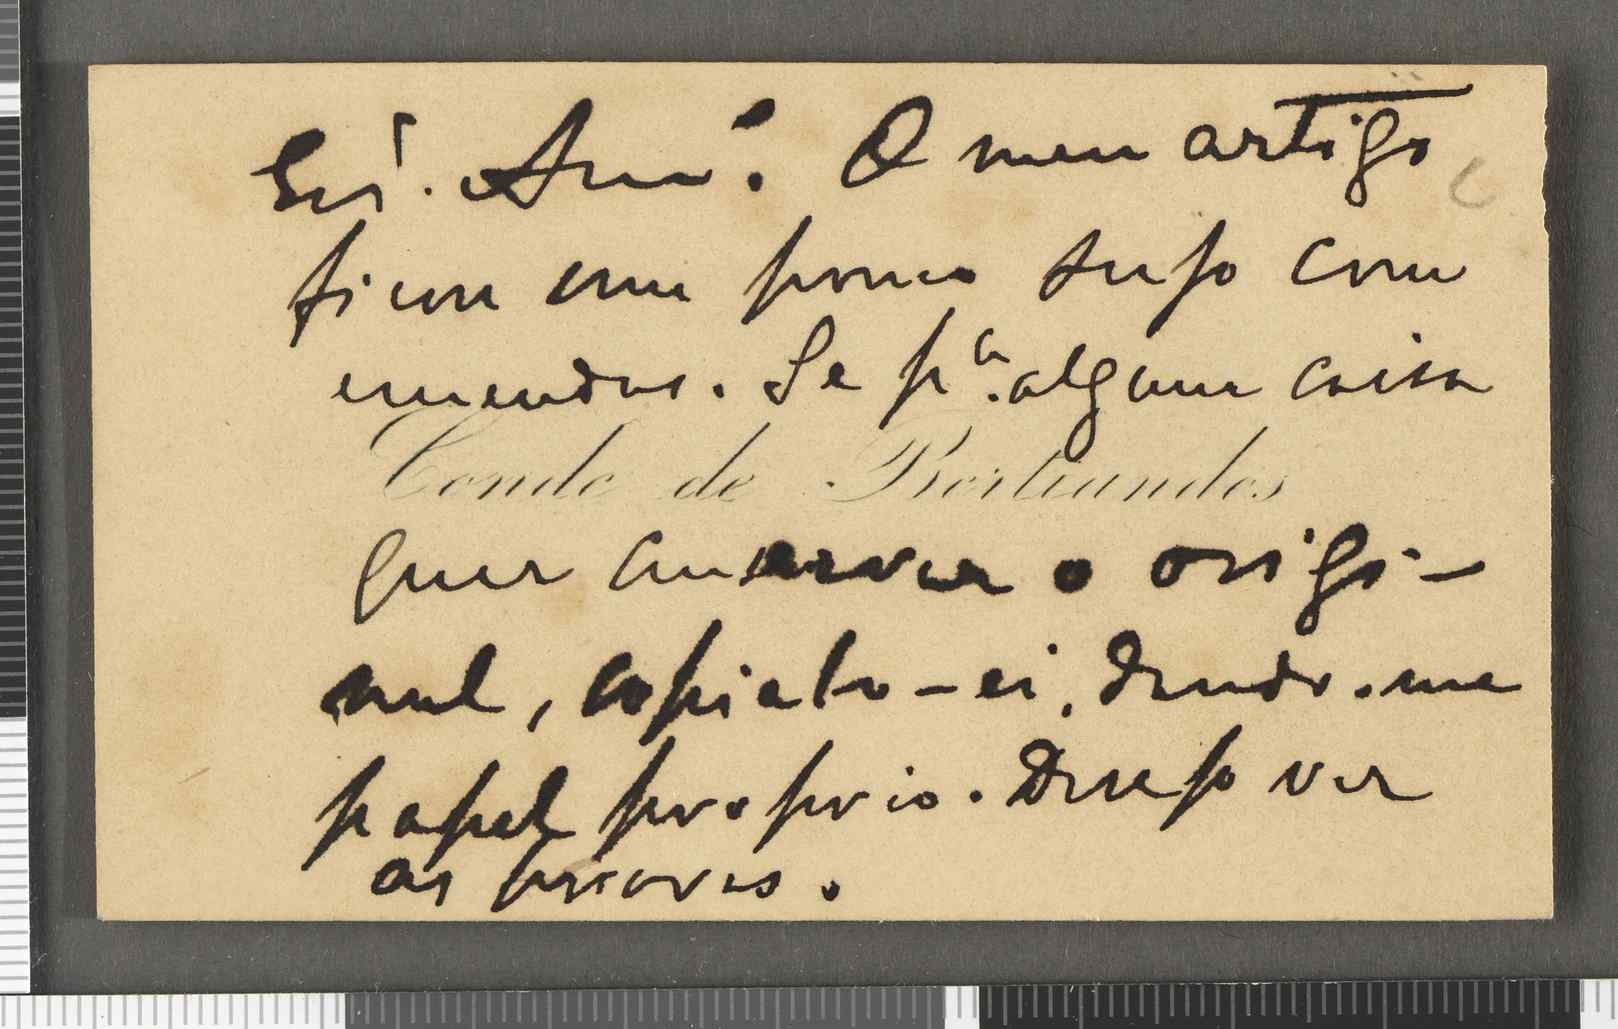 Exº. Amº. O meu artigo
ficou um pouco sujo com
emendas. Se pª. alguma coisa
Conde de Bertiandos
quer conservar o origi-
nal, copialo-ei, dando-me
papel proprio. Desejo ver
as provas.